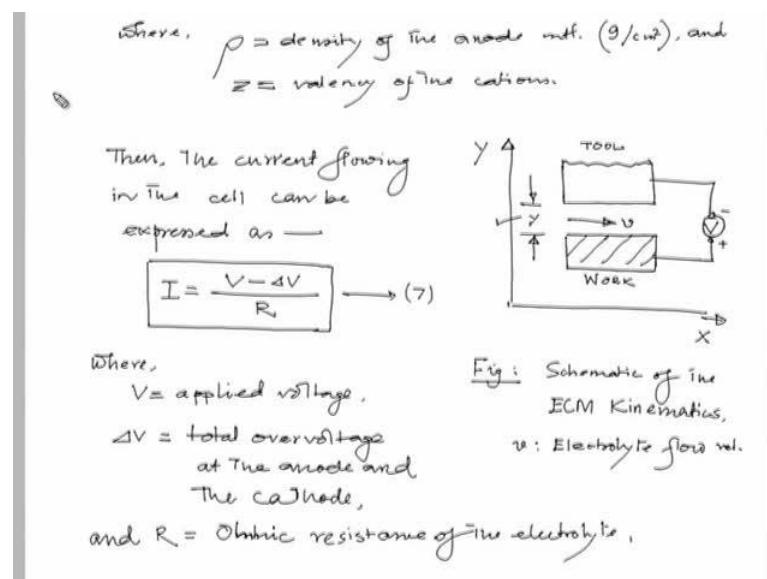 where,
ρ = density of the anode mtl. (g/cm³), and
z = valency of the cations.
Then, the current flowing
in the cell can be
expressed as —
I = (V - ΔV) / R → (7)
where,
V = applied voltage,
ΔV = total overvoltage
at the anode and
the cathode,
and R = Ohmic resistance of the electrolyte,
Y
TOOL
y
v
V
-
+
WORK
X
Fig: Schematic of the
ECM Kinematics,
v: Electrolyte flow vel.